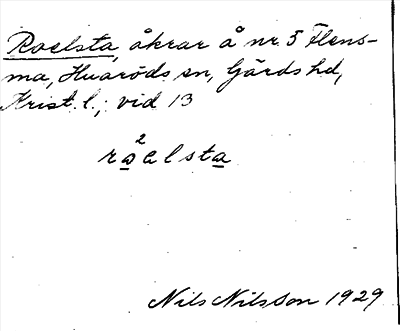 Roelsta, åkrar å nr 5 Flens-
ma, Huaröds sn, Gärds hd,
Krist. l.; vid 13
2
raelsta
Nils Nilsson 1929